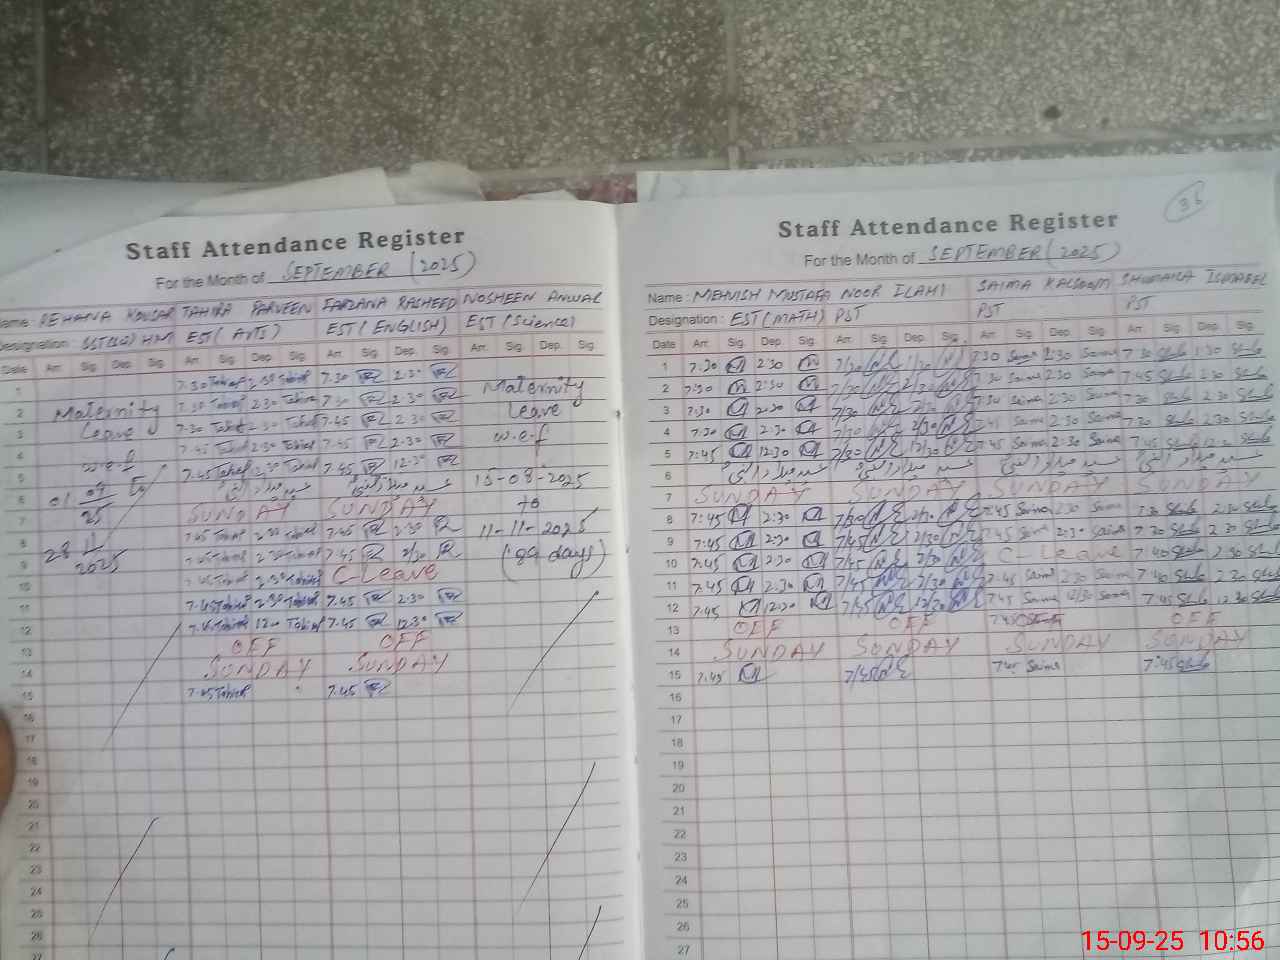 Staff Attendance Register
For the Month of SEPTEMBER (2025)
Name: REHANA KOUSAR TAHIRA PARVEEN FARZANA RASHEED NOSHEEN ANWAR
Designation: SST(Sc) HM EST (AVTS) EST (ENGLISH) EST (Science)
Date Arr. Sig. Dep. Sig. Arr. Sig. Dep. Sig. Arr. Sig. Dep. Sig. Arr. Sig. Dep. Sig.
1 7:30 Tahira 2:30 Tahira 7:30 2:30 Maternity
2 Maternity 7:30 Tahira 2:30 Tahira 7:30 2:30 Leave
3 Leave 7:30 Tahira 2:30 Tahira 7:45 2:30 w.e.f
4 w.e.f 7:45 Tahira 2:30 Tahira 7:45 2:30
5 7:45 Tahira 12:30 Tahira 7:45 12:30 15-08-2025
6 01 09 25 عید میلاد النبی عید میلاد النبی to
7 SUNDAY SUNDAY 11-11-2025
8 28 11 2025 7:45 Tahira 2:30 Tahira 7:45 2:30 (89 days)
9 7:45 Tahira 2:30 Tahira 7:45 2/30
10 7:45 Tahira 2:30 Tahira C Leave
11 7:45 Tahira 2:30 Tahira 7:45 2:30
12 7:45 Tahira 12:30 Tahira 7:45 12:30
13 OFF OFF
14 SUNDAY SUNDAY
15 7:45 Tahira 7:45
16
17
18
19
20
21
22
23
24
25
26
27
36
Staff Attendance Register
For the Month of SEPTEMBER (2025)
Name: MEHVISH MUSTAFA NOOR ILAHI SAIMA KALSOOM SHUMAILA ISMAEEL
Designation: EST (MATH) PST PST PST
Date Arr. Sig. Dep. Sig. Arr. Sig. Dep. Sig. Arr. Sig. Dep. Sig. Arr. Sig. Dep. Sig.
1 7:30 2:30 7/30 2/30 7:30 Saima 2:30 Saima 7:30 2:30
2 7:30 2:30 7/30 2/30 7:30 Saima 2:30 Saima 7:45 2:30
3 7:30 2:30 7/30 2/30 7:30 Saima 2:30 Saima 7:30 2:30
4 7:30 2:30 7/30 2/30 7:45 Saima 2:30 Saima 7:30 2:30
5 7:45 12:30 7/30 12/30 7:45 Saima 12:30 Saima 7:45 12:30
6 عید میلاد النبی عید میلاد النبی عید میلاد النبی عید میلاد النبی
7 SUNDAY SUNDAY SUNDAY SUNDAY
8 7:45 2:30 7/30 2/30 7:45 Saima 2:30 Saima 7:30 2:30
9 7:45 2:30 7/45 2/30 7:45 Saima 2:30 Saima 7:30 2:30
10 7:45 2:30 7/45 2/30 C Leave 7:40 2:30
11 7:45 2:30 7/45 2/30 7:45 Saima 2:30 Saima 7:40 2:30
12 7:45 12:30 7/45 12/30 7:45 Saima 12/30 Saima 7:45 12:30
13 OFF OFF 7:45 OFF
14 SUNDAY SUNDAY SUNDAY SUNDAY
15 7:45 7/45 7:45 Saima 7:45
16
17
18
19
20
21
22
23
24
25
26
27
15-09-25 10:56